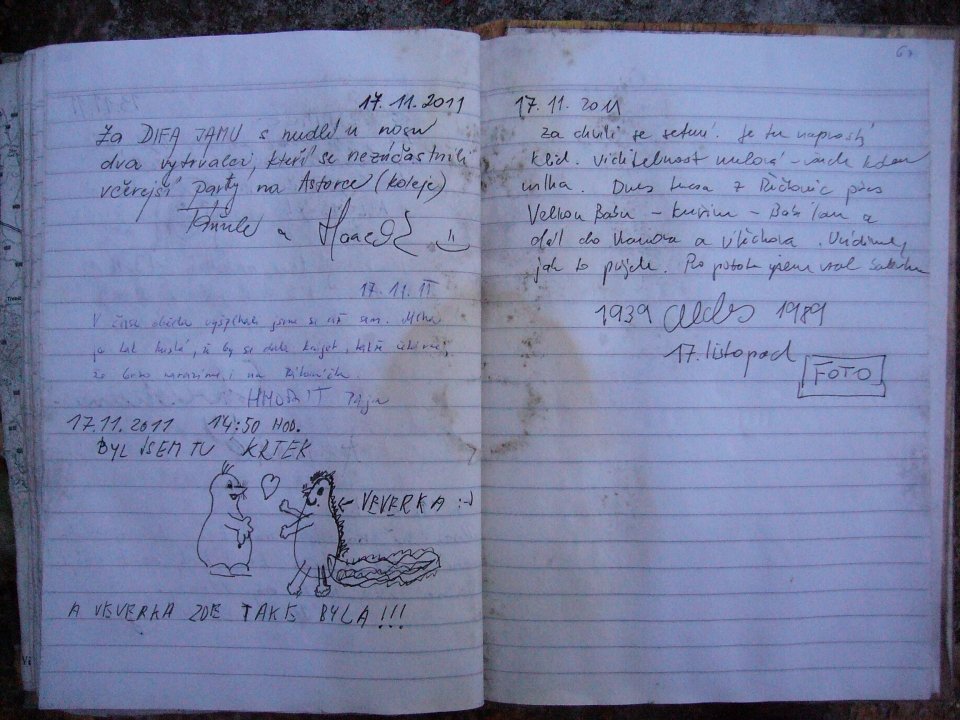 17.11.2011
Za DIFA JAMU s nudlí u nosu
dva vytrvalci, kteří se nezúčastnili
včerejší party na Astorce (koleje)
a
17.11.11
V čase oběda vyšplhali jsme se až sem. Mlha
je tak hustá, že by se dala krájet, takže
že brzo narazíme i na
17.11.2011 14:50 HOD.
BYL JSEM TU KRTEK
← VEVERKA :-)
A VEVERKA ZDE TAKE BYLA !!!
67
17.11.2011
Za chvíli se setmí. Je tu naprostý
klid. Viditelnost nulová - všude kolem
mlha. Dnes trasa z Říčovic přes
Velkou Babu - Kuřim - Babí lom a
dál do a Vítěchova. Uvidíme,
jak to půjde. Po potoku jsem vzal
1939 1989
17. listopad
FOTO